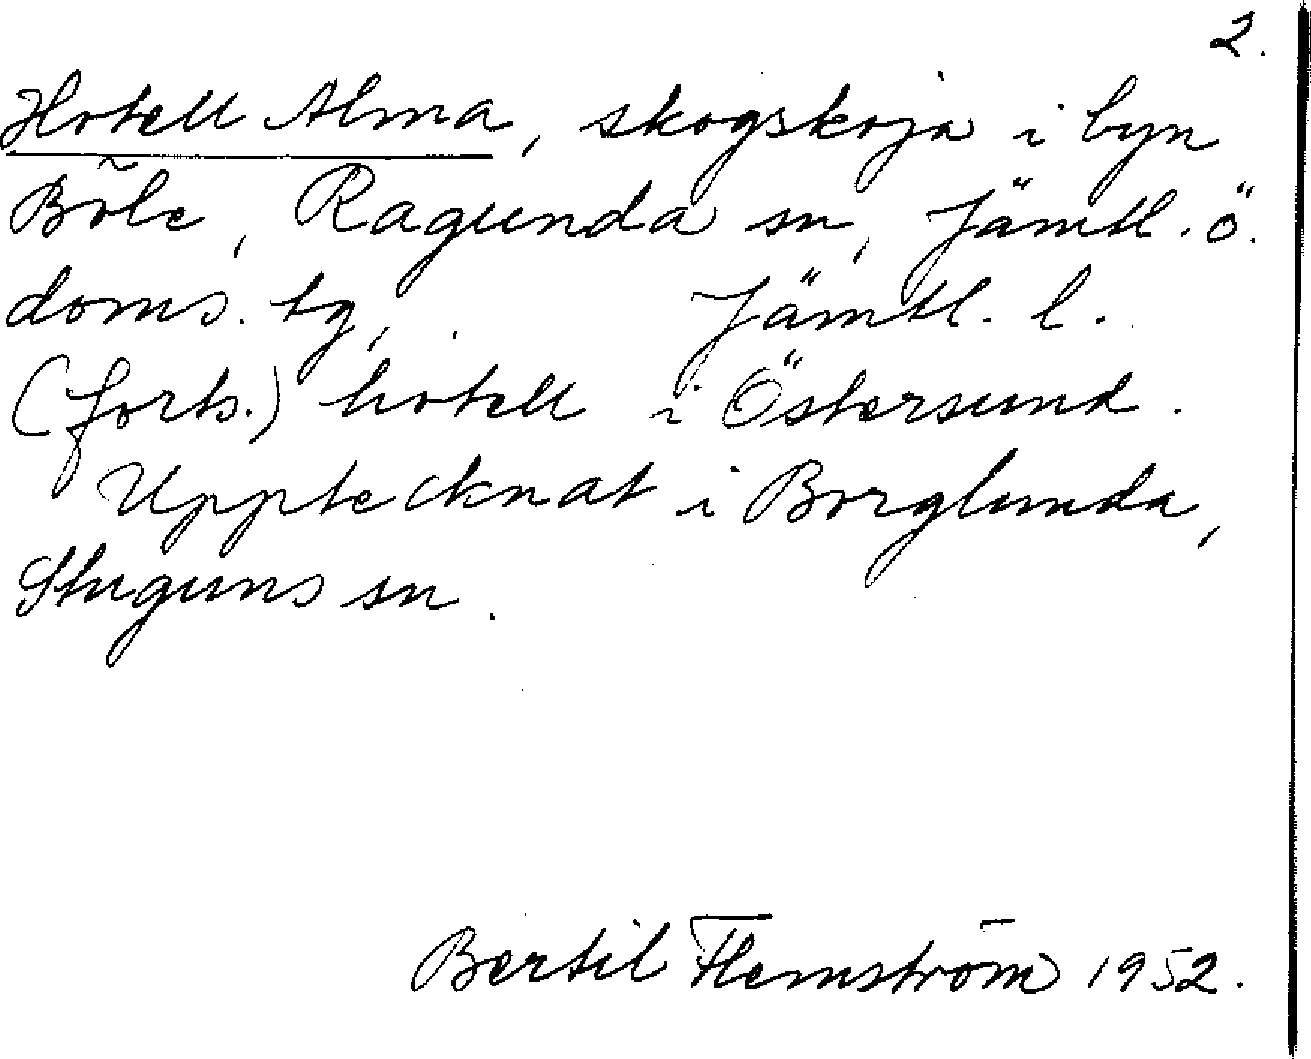 2.
Hotell Alma, skogskoja i byn
Böle, Ragunda sn, Jämtl. ö.
doms. tg, Jämtl. l.
(forts.) hotell i Östersund.
Upptecknat i Borglunda,
Stuguns sn.
Bertil Flemström 1952.